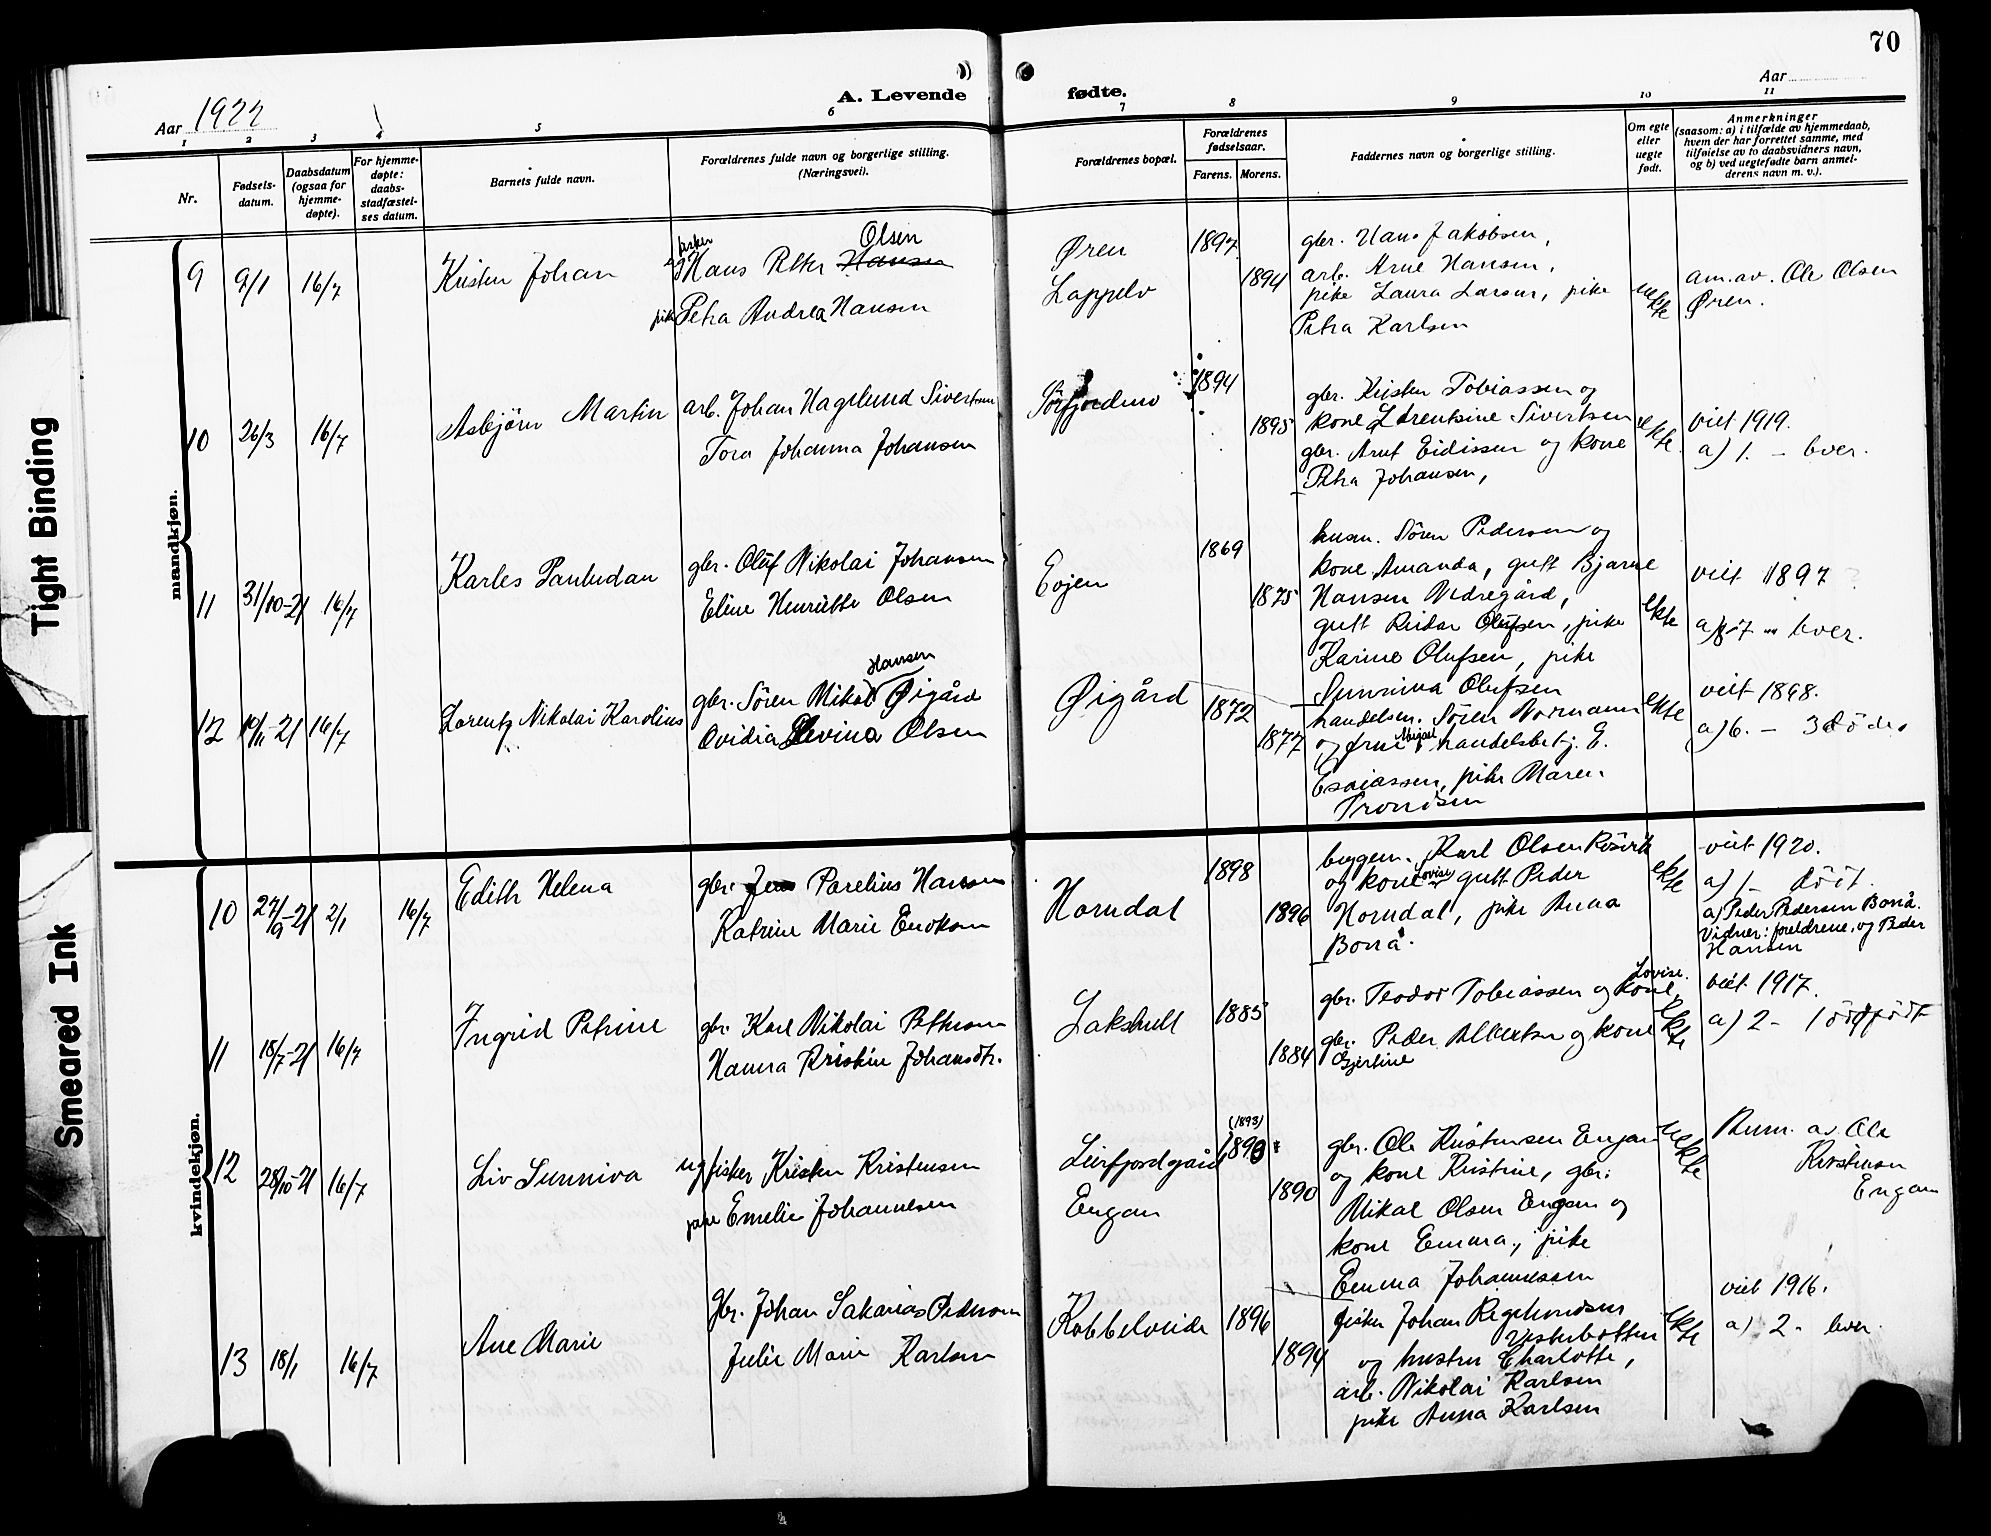 70
Aar 1922
A. Levende
fødte.
Aar
1 2 3 4 5 6 7 8 9 10 11
Nr.
Fødsels-
datum.
Daabsdatum
(ogsaa for
hjemme-
døpte).
For hjemme-
døpte:
daabs-
stadfæstel-
ses datum.
Barnets fulde navn.
Forældrenes fulde navn og borgerlige stilling.
(Næringsvei).
Forældrenes bopæl.
Forældrenes
fødselsaar.
Farens. Morens.
Faddernes navn og borgerlige stilling.
Om egte
eller
uegte
født.
Anmerkninger
(saasom: a) i tilfælde av hjemmedaab,
hvem der har forrettet samme, med
tilføielse av to daabsvidners navn,
og b) ved uegtefødte barn anmel-
derens navn m. v.).
mandkjøn.
9 9/1 16/7
Kristen Johan
fisker Olsen
ug Hans Peter Hansen
pike Petra Andrea Hansen
Øren
Lappelv
1897
1894
gbr. Hans Jakobsen,
arb. Arne Hansen,
pike Laura Larsen, pike
Petra Karlsen
uekte
am. av. Ole Olsen
Øren.
10 26/3 16/7
Asbjörn Martin
arb. Johan Hagelund Sivertsen
Tora Johanna Johansen
Sörfjordmo
1894
1895
gbr. Kristen Tobiassen og
kone Lorentsine Sivertsen
gbr. Arnt Eidissen og kone
Petra Johansen,
ekte
viet 1919.
a) 1. - lever.
11 31/10-21 16/7
Karles Pauludan
gbr. Oluf Nikolai Johansen
Eline Henriette Olsen
Eojen
1869
1875
husm. Sören Pedersen og
kone Amanda, gutt Bjarne
Hansen Nedregård,
gutt Reidar Olufsen, pike
Karine Olufsen, pike
Sunniva Olufsen
ekte
viet 1897
a) 7 - lever.
12 19/11-21 16/7
Lorentz Nikolai Karolius
Hansen
gbr. Sören Mikal Øigård
Ovidia Levina Olsen
Øigård
1872
1877
handelsm. Sören Normann
og frue Abigael, handelsbetj. E.
Esaiassen, pike Maren
Trondsen
ekte
viet 1898.
a) 6. - 3 döde
kvindekjøn.
10 27/9-21 2/1 16/7
Edith Helena
gbr. Jens Parelius Hansen
Katrine Marie Eriksen
Horndal
1898
1896
byggm. Karl Olsen Rösvik
og kone Lovise gutt Peder
Horndal, pike Anna
Bonå.
ekte
viet 1920.
a) 1 - dödt.
a) Peder Pedersen Bonå.
Vidner: foreldrene, og Peder
Hansen
11 18/7-21 16/7
Ingrid Petrine
gbr. Karl Nikolai Pettersen
Hanna Kristine Johansdtr.
Lakshull
1885
1884
Lovise.
gbr. Teodor Tobiassen og kone,
gbr. Peder Albertsen og kone
Gjertine
ekte
viet 1917.
a) 2 - 1 dödfödt
12 28/10-21 16/7
Liv Sunniva
ug fisker Kristen Kristensen
pike Emelie Johannesen
Leirfjordgård
Engan
(1893)
1893
1890
gbr. Ole Kristensen Engan
og kone Kristine, gbr.
Mikal Olsen Engan og
kone Emma, pike
Emma Johannessen
uekte
Anm. av Ole
Kristensen
Engan
13 18/1 16/7
Ane Marie
gbr. Johan Sakarias Pedersen
Julie Marie Karlsen
Kobbelveide
1896
1894
fisker Johan Regelundsen
Vesterbotten
og hustru Charlotte,
arb. Nikolai Karlsen
pike Anna Karlsen
ekte
viet 1916.
a) 2 - lever.
Tight Binding
Smeared Ink